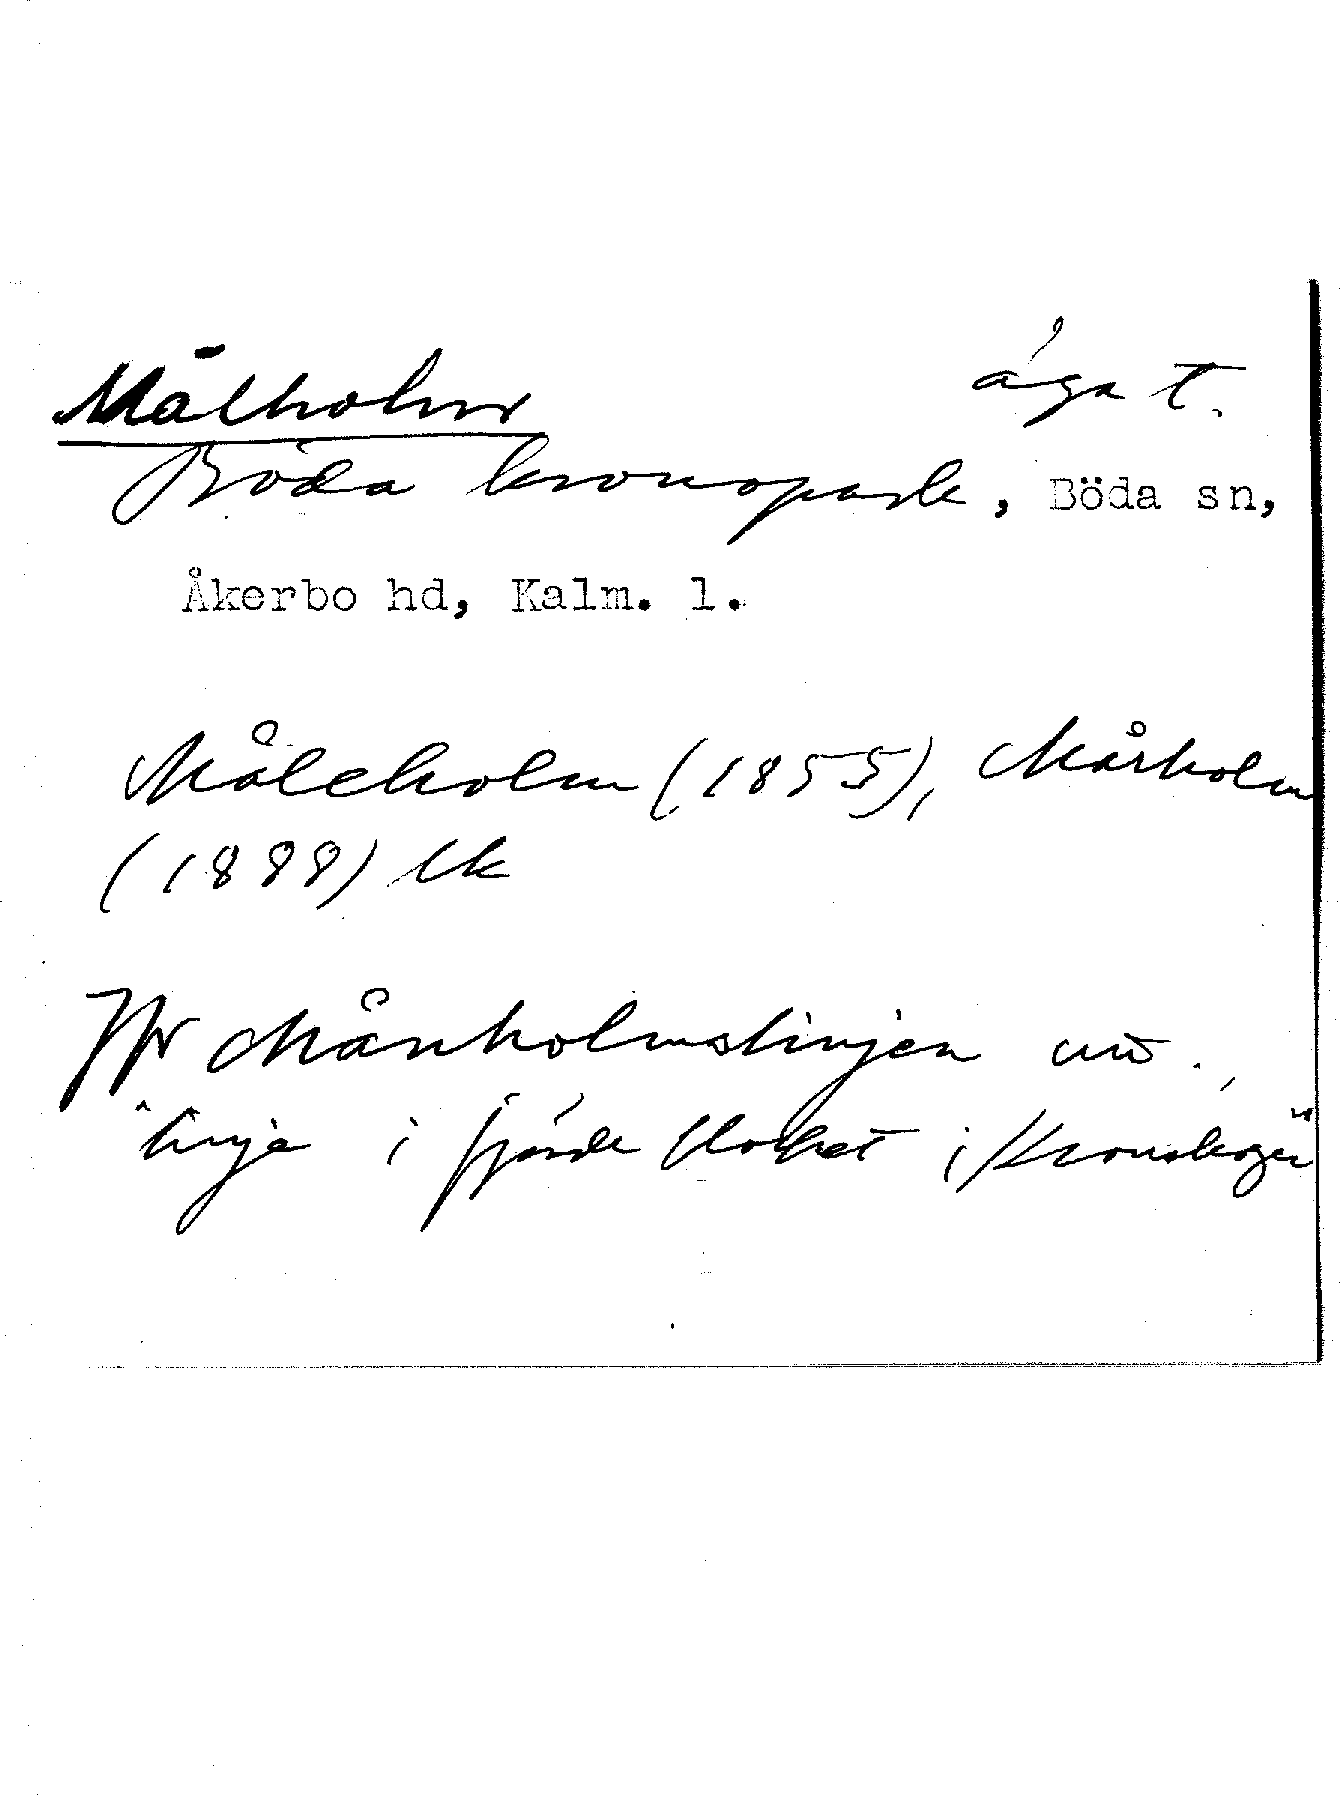 Målholm ägat.
Böda kronopark, Böda sn,
Åkerbo hd, Kalm. l.
Måleholm (1855), Mårholm
(1888) lk
Jfr Månholmslinjen uo.,
"linje i fjärde blocket i Kronskogen"